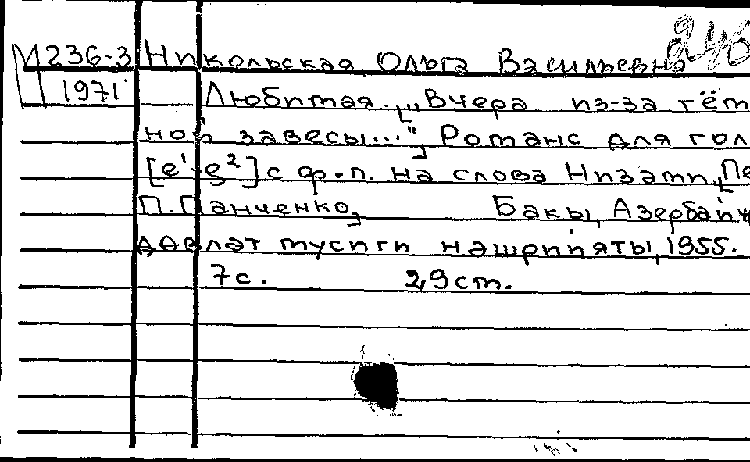 М 236-3 Никольская Ольга Васильевна
1971 Любимая. [„Вчера из-за тём
ной завесы..."] Романс для гол
[e¹-g²] с ф.-п. на слова Низами, [Пе
П. Панченко] Бакы, Азербайҹ
дөвләт мусиги нәшрийяты, 1955.
7с. 29 cm.